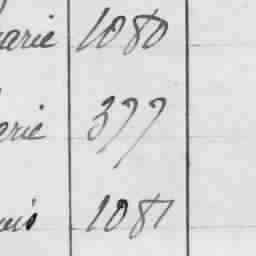 arie 1080
erie 377
uis 1081